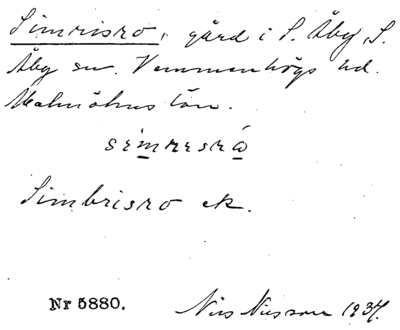 Simrisro, gård i S. Åby, S.
Åby sn. Vemmenhögs hd.
Malmöhus län.
simrisrå
Simbrisro ek.
Nr 5880. Nils Nilsson 1937.